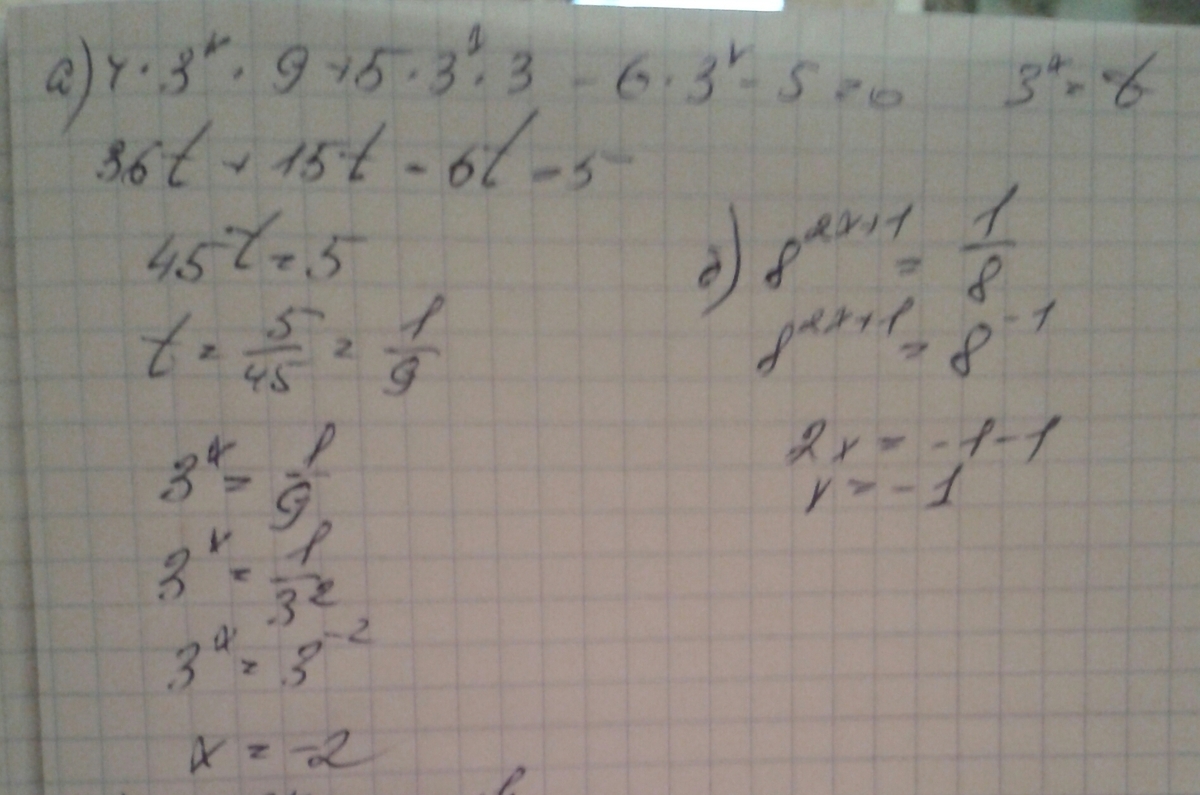 а) 4 · 3^x · 9 + 5 · 3^x · 3 - 6 · 3^x - 5 = 0    3^x = t
36t + 15t - 6t - 5
45t = 5
t = 5/45 = 1/9
3^x = 1/9
3^x = 1/3^2
3^x = 3^-2
x = -2
б) 8^2x+1 = 1/8
8^2x+1 = 8^-1
2x = -1-1
x = -1